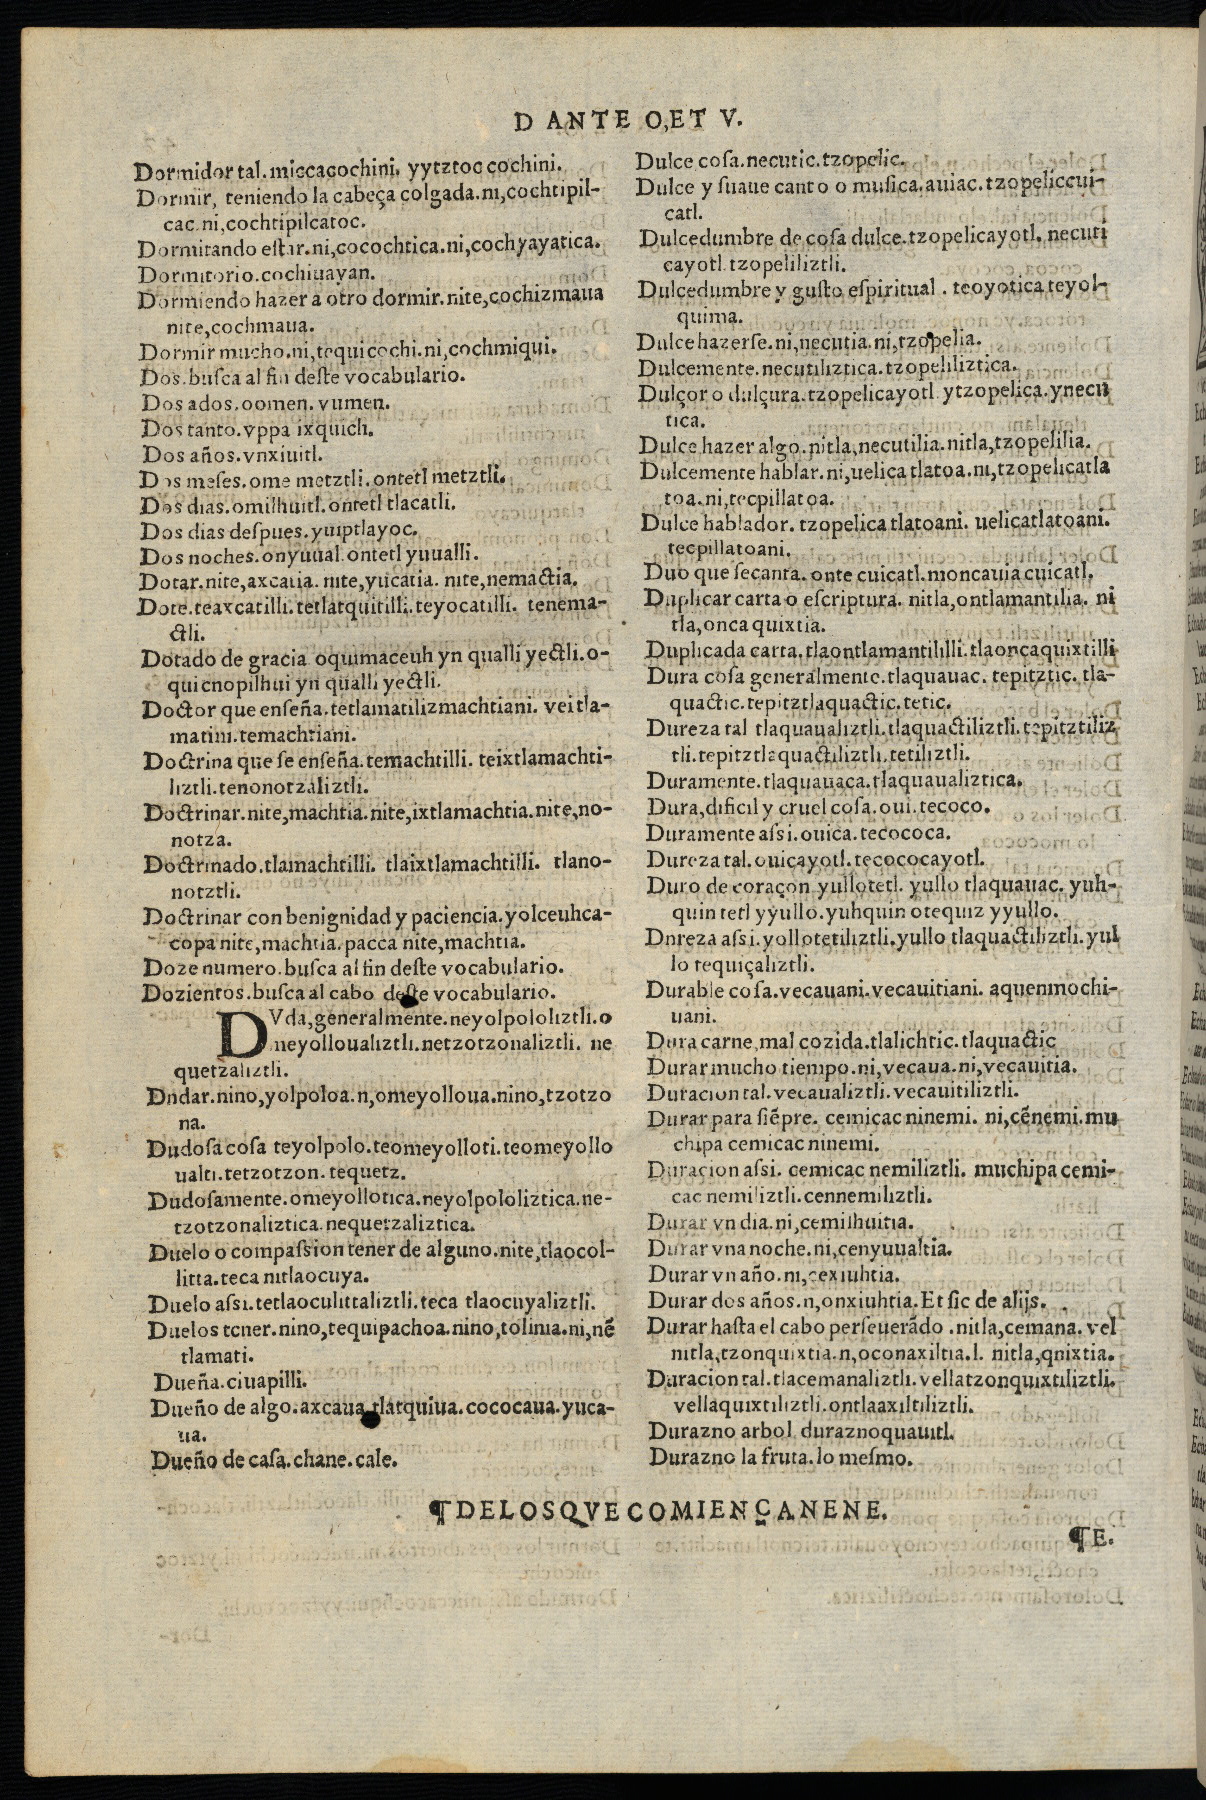 D ANTE O,ET V.
Dormidor tal. miccacochini. yytztoc cochini.
Dormir, teniendo la cabeça colgada. ni,cochtipil-
cac. ni,cochtipilcatoc.
Dormitando estar. ni,cocochtica. ni,cochyayatica.
Dormitorio. cochiuayan.
Dormiendo hazer a otro dormir. nite,cochizmaua
nite,cochmaua.
Dormir mucho. ni,tequi cochi. ni,cochmiqui.
Dos. busca al fin deste vocabulario.
Dos a dos. oomen. vumen.
Dos tanto. vppa ixquich.
Dos años. vnxiuitl.
Dos meses. ome metztli. ontetl metztli.
Dos dias. omilhuitl. ontetl tlacatli.
Dos dias despues. yuiptlayoc.
Dos noches. onyuual. ontetl yuualli.
Dotar. nite,axcatia. nite,yucatia. nite,nemactia.
Dote. teaxcatilli. tetlatquitilli. teyocatilli. tenema-
ctli.
Dotado de gracia oquimaceuh yn qualli yectli. o-
quicnopilhui yn qualli yectli.
Doctor que enseña. tetlamatilizmachtiani. vei tla-
matini. temachtiani.
Doctrina que se enseña. temachtilli. teixtlamachti-
liztli. tenonotzaliztli.
Doctrinar. nite,machtia. nite,ixtlamachtia. nite,no-
notza.
Doctrinado. tlamachtilli. tlaixtlamachtilli. tlano-
notztli.
Doctrinar con benignidad y paciencia. yolceuhca-
copa nite,machtia. pacca nite,machtia.
Doze numero. busca al fin deste vocabulario.
Dozientos. busca al cabo deste vocabulario.
DVda, generalmente. neyolpololiztli. o
neyolloualiztli. netzotzonaliztli. ne
quetzaliztli.
Dndar. nino,yolpoloa. n,omeyolloua. nino,tzotzo
na.
Dudosa cosa teyolpolo. teomeyolloti. teomeyollo
ualti. tetzotzon. tequetz.
Dudosamente. omeyollotica. neyolpololiztica. ne-
tzotzonaliztica. nequetzaliztica.
Duelo o compassion tener de alguno. nite,tlaocol-
litta. teca nitlaocuya.
Duelo assi. tetlaoculittaliztli. teca tlaocuyaliztli.
Duelos tener. nino,tequipachoa. nino,tolinia. ni,nẽ
tlamati.
Dueña. ciuapilli.
Dueño de algo. axcaua. tlatquiua. cococaua. yuca-
ua.
Dueño de casa. chane. cale.
Dulce cosa. necutic. tzopelic.
Dulce y suaue canto o musica. auiac. tzopeliccui-
catl.
Dulcedumbre de cosa dulce. tzopelicayotl. necuti
cayotl. tzopeliliztli.
Dulcedumbre y gusto espiritual. teoyotica teyol-
quima.
Dulce hazerse. ni,necutia. ni,tzopelia.
Dulcemente. necutiliztica. tzopeliliztica.
Dulçor o dulçura. tzopelicayotl. ytzopelica. ynecu
tica.
Dulce hazer algo. nitla,necutilia. nitla,tzopelilia.
Dulcemente hablar. ni,uelica tlatoa. ni,tzopelicatla
toa. ni,tecpillatoa.
Dulce hablador. tzopelica tlatoani. uelicatlatoani.
tecpillatoani.
Duo que se canta. onte cuicatl. moncauia cuicatl.
Duplicar carta o escriptura. nitla,ontlamantilia. ni
tla,onca quixtia.
Duplicada carta. tlaontlamantililli. tlaoncaquixtilli
Dura cosa generalmente. tlaquauac. tepitztic. tla-
quactic. tepitztlaquactic. tetic.
Dureza tal tlaquaualiztli. tlaquactiliztli. tepitztiliz
tli. tepitztlaquactiliztli. tetiliztli.
Duramente. tlaquauaca. tlaquaualiztica.
Dura, dificil y cruel cosa. oui. tecoco.
Duramente assi. ouica. tecococa.
Dureza tal. ouicayotl. tecococayotl.
Duro de coraçon yullotetl. yullo tlaquauac. yuh-
quin tetl yyullo. yuhquin otequiz yyullo.
Dnreza assi. yollotetiliztli. yullo tlaquactiliztli. yul
lo tequiçaliztli.
Durable cosa. vecauani. vecauitiani. aquenmochi-
uani.
Dura carne, mal cozida. tlalichtic. tlaquactic
Durar mucho tiempo. ni,vecaua. ni,vecauitia.
Duracion tal. vecaualiztli. vecauitiliztli.
Durar para siẽpre. cemicac ninemi. ni,cẽnemi. mu
chipa cemicac ninemi.
Duracion assi. cemicac nemiliztli. muchipa cemi-
cac nemiliztli. cennemiliztli.
Durar vn dia. ni,cemilhuitia.
Durar vna noche. ni,cenyuualtia.
Durar vn año. ni,cexiuhtia.
Durar dos años. n,onxiuhtia. Et sic de alijs.
Durar hasta el cabo perseuerãdo. nitla,cemana. vel
nitla,tzonquixtia. n,oconaxiltia. l. nitla,qnixtia.
Duracion tal. tlacemanaliztli. vellatzonquixtiliztli.
vellaquixtiliztli. ontlaaxiltiliztli.
Durazno arbol. duraznoquauitl.
Durazno la fruta. lo mesmo.
¶DELOSQVECOMIENÇANENE.
¶E.